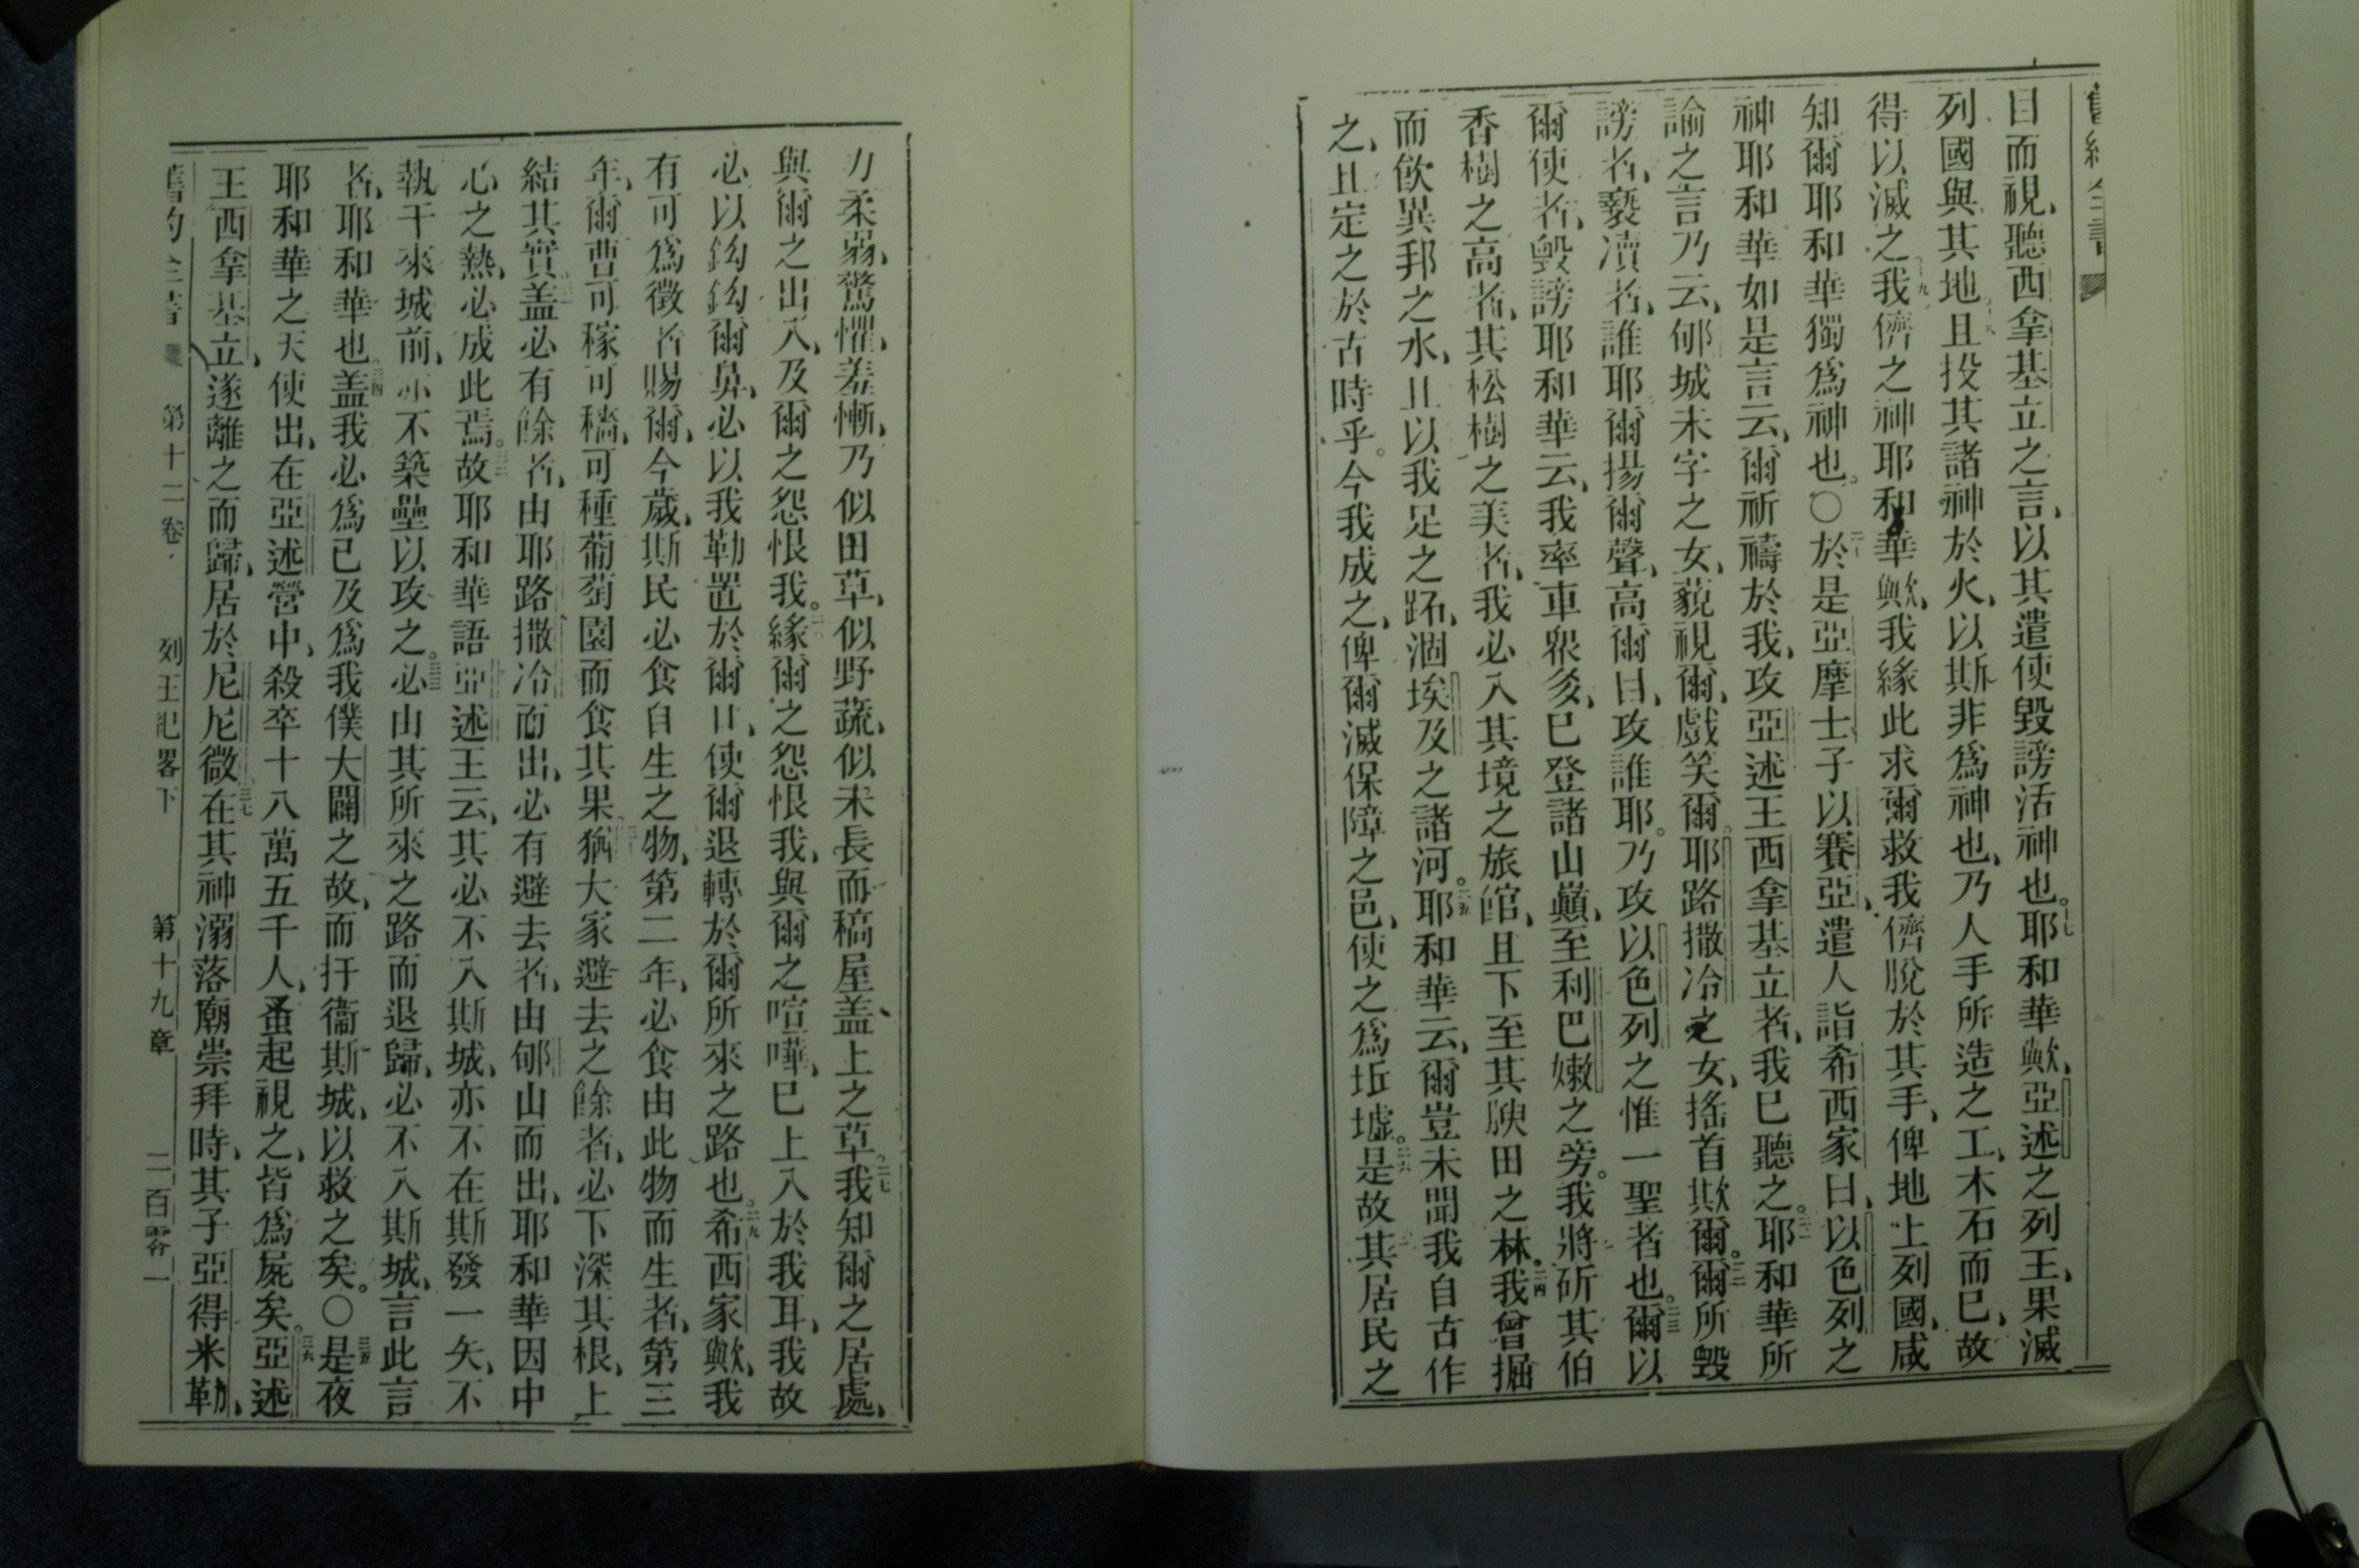 目而視、聽西拿基立之言、以其遣使毀謗活神也。十七耶和華歟、亞述之列王、果滅
列國與其地、十八且投其諸神於火、以斯非爲神也、乃人手所造之工、木石而已、故
得以滅之、十九我儕之神耶和華歟、我緣此求爾救我儕脫於其手、俾地上列國、咸
知爾耶和華獨爲神也。〇二十於是亞摩士子以賽亞、遣人詣希西家曰、以色列之
神耶和華如是言云、爾祈禱於我、攻亞述王西拿基立者、我已聽之。二一耶和華所
諭之言乃云、郇城未字之女、藐視爾、戲笑爾。耶路撒冷之女、搖首欺爾。二二爾所毀
謗者、褻凟者、誰耶、爾揚爾聲、高爾目、攻誰耶。乃攻以色列之惟一聖者也。二三爾以
爾使者、毀謗耶和華云、我率車衆多、已登諸山巔、至利巴嫩之旁。我將斫其伯
香樹之高者、其松樹之美者、我必入其境之旅館、且下至其腴田之林。二四我曾掘
而飲異邦之水、且以我足之跖、涸埃及之諸河。二五耶和華云、爾豈未聞我自古作
之、且定之於古時乎。今我成之、俾爾滅保障之邑、使之爲坵墟。二六是故其居民之
力柔弱、驚懼、羞慚、乃似田草、似野蔬、似未長而稿屋盖上之草。二七我知爾之居處、
與爾之出入、及爾之怨恨我。二八緣爾之怨恨我、與爾之喧嘩、已上入於我耳、我故
必以鈎鈎爾鼻、必以我勒置於爾口、使爾退轉於爾所來之路也。二九希西家歟、我
有可爲徵者賜爾、今歲、斯民必食自生之物、第二年、必食由此物而生者、第三
年、爾曹可稼可穡、可種葡萄園而食其果。三十猶大家避去之餘者、必下深其根、上
結其實。三一盖必有餘者、由耶路撒冷而出、必有避去者、由郇山而出、耶和華因中
心之熱、必成此焉。三二故耶和華語亞述王云、其必不入斯城、亦不在斯發一矢、不
執干來城前、亦不築壘以攻之。三三必由其所來之路而退歸、必不入斯城、言此言
者、耶和華也。三四盖我必爲已及爲我僕大闢之故、而扞衞斯城、以救之矣。〇三五是夜
耶和華之天使出、在亞述營中、殺卒十八萬五千人、蚤起視之、皆爲屍矣。三六亞述
王西拿基立、遂離之而歸、居於尼尼微、三七在其神溺落廟崇拜時、其子亞得米勒、
舊約全書 第十二卷 列王紀畧下 第十九章 二百零一